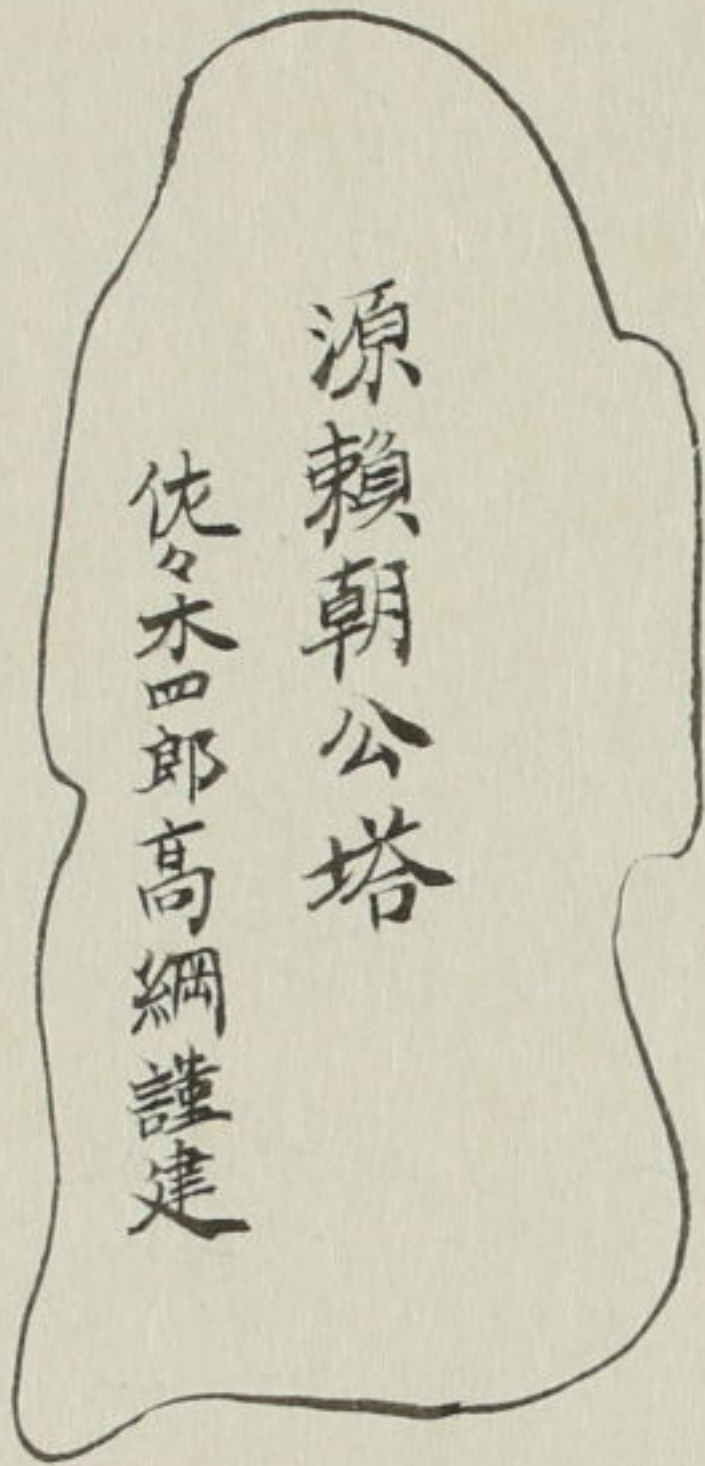 源賴朝公塔
佐々木四郎高綱謹建